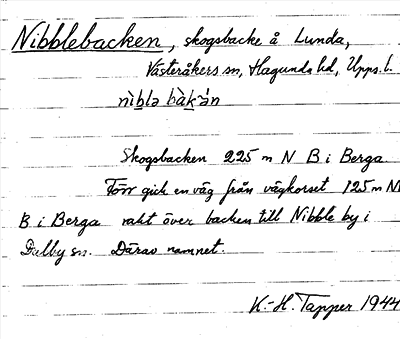 Nibblebacken, skogsbacke å Lunda,
Västeråkers sn, Hagunda hd, Upps. l.
nìb̲lə bàk̲-ən
Skogsbacken 225 m N B i Berga.
Förr gick en väg från vägkorset 125 m N
B i Berga rakt över backen till Nibble by i
Dalby sn. Därav namnet.
K.-H. Tapper 1944